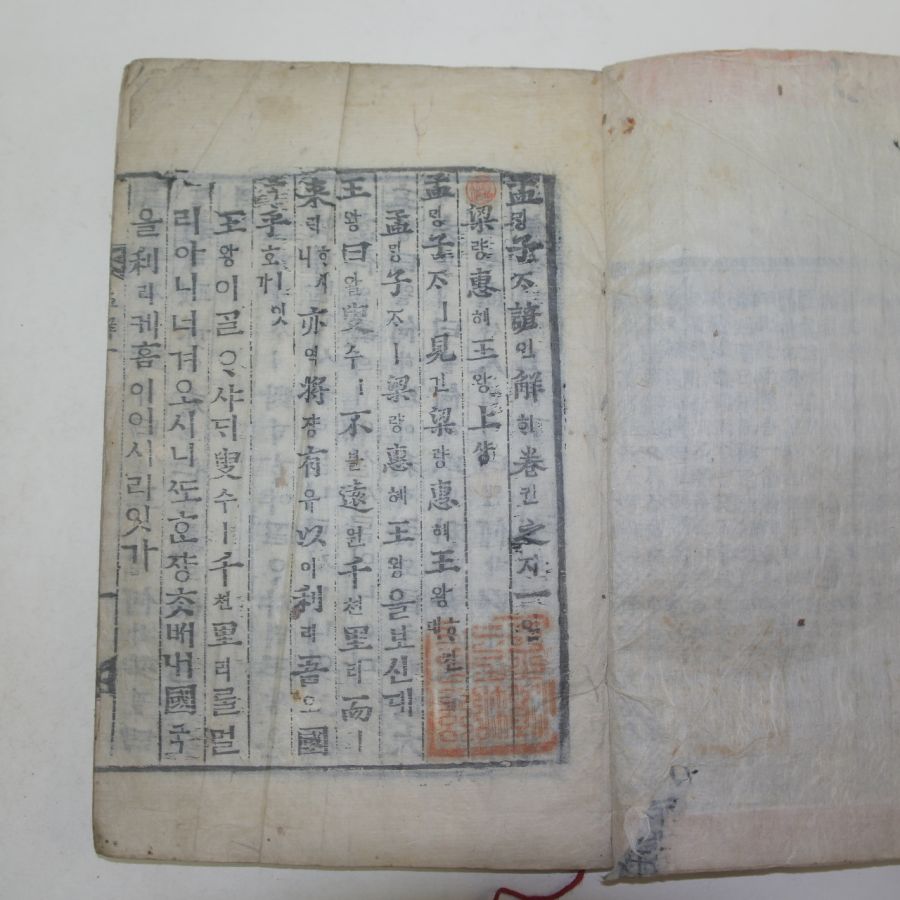 孟ᄆᆡᆼ子ᄌᆞ諺언解ᄒᆡ卷권之지一일
梁량惠혜王왕上샹
孟ᄆᆡᆼ子ᄌᆞㅣ見견梁량惠혜王왕ᄒᆞ신대
孟ᄆᆡᆼ子ᄌᆞㅣ梁량惠혜王왕을보신대
王왕曰왈叟수ㅣ不불遠원千쳔里리而ㅣ
來ᄅᆡᄒᆞ시니亦역將쟝有유以이利리吾오國
乎호ㅣ잇가
王왕이ᄀᆞᆯᄋᆞ샤ᄃᆡ叟수ㅣ千쳔里리ᄅᆞᆯ멀
리아니너겨오시니ᄯᅩᄒᆞᆫ쟝ᄎᆞᆺᄡᅥ내國국
을利리케홈이이시리잇가